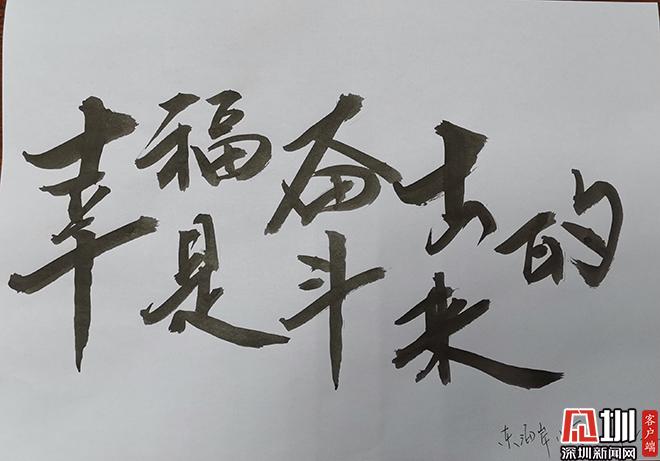 幸福是奋斗出来的
东海岸
深圳新闻网
客户端